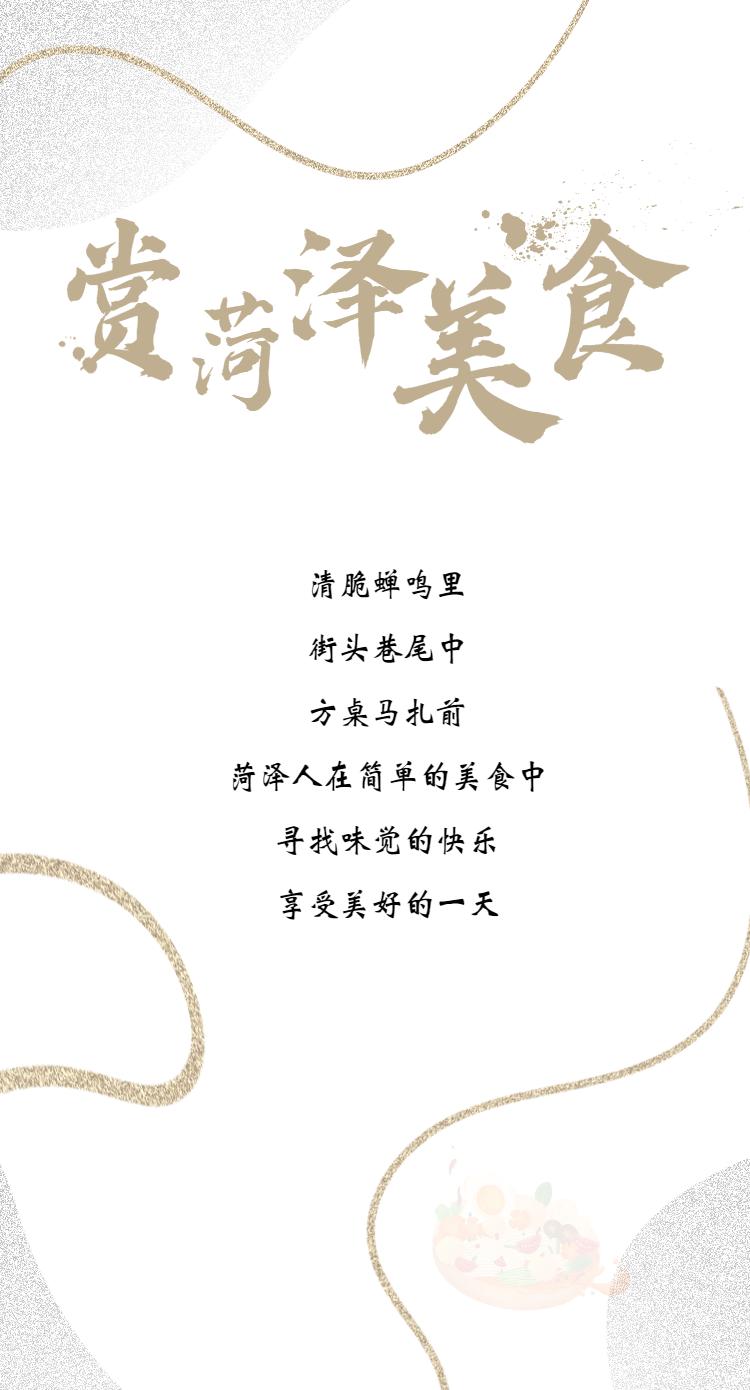 赏菏泽美食
清脆蝉鸣里
街头巷尾中
方桌马扎前
菏泽人在简单的美食中
寻找味觉的快乐
享受美好的一天